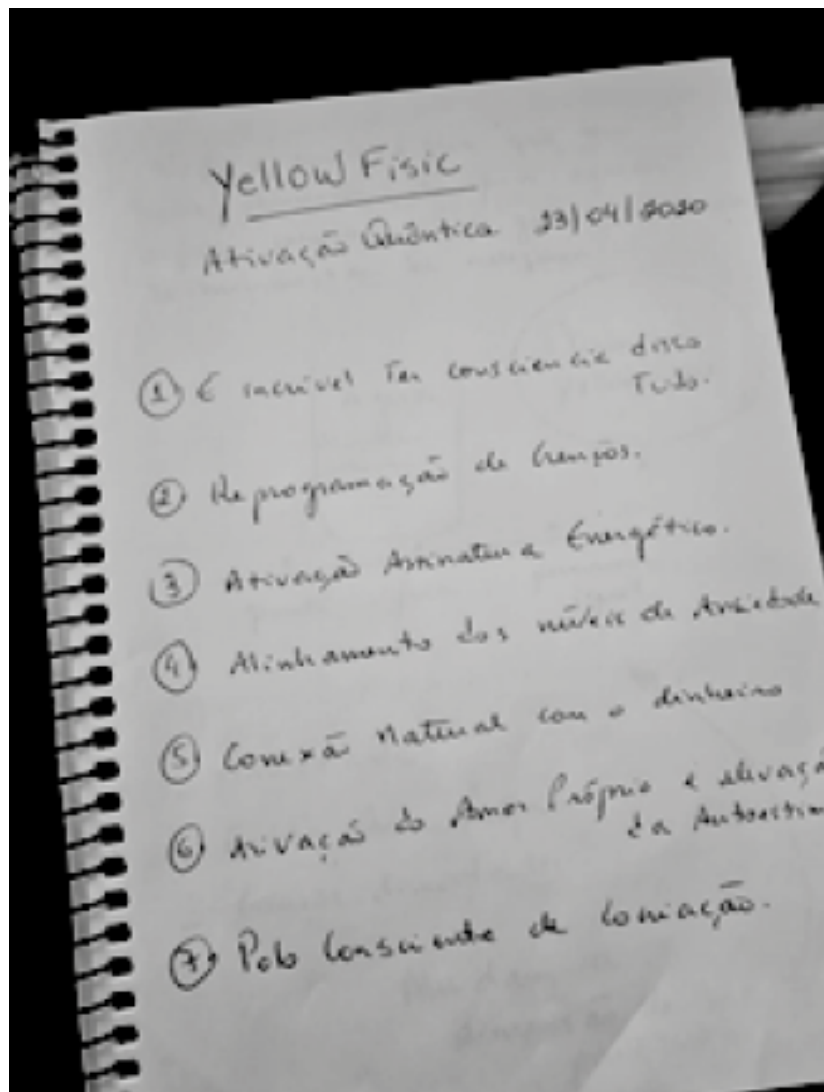 Yellow Fisic
Ativação Quântica 23/04/2020
① É incrível Ter consciencia disso
Tudo.
② Reprogramação de Crenças.
③ Ativação Assinatura Energética.
④ Alinhamento dos níveis de Ansiedade
⑤ Conexão Natural com o dinheiro
⑥ Ativação do Amor Próprio e elevaçã
da Autoestim
⑦ Polo Consciente de